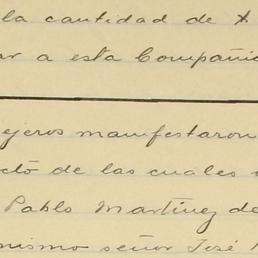 la cantidad de
ar a esta Compañia
ejeros manifestaron
ctó de las cuales
Pablo Martínez de
mismo señor José